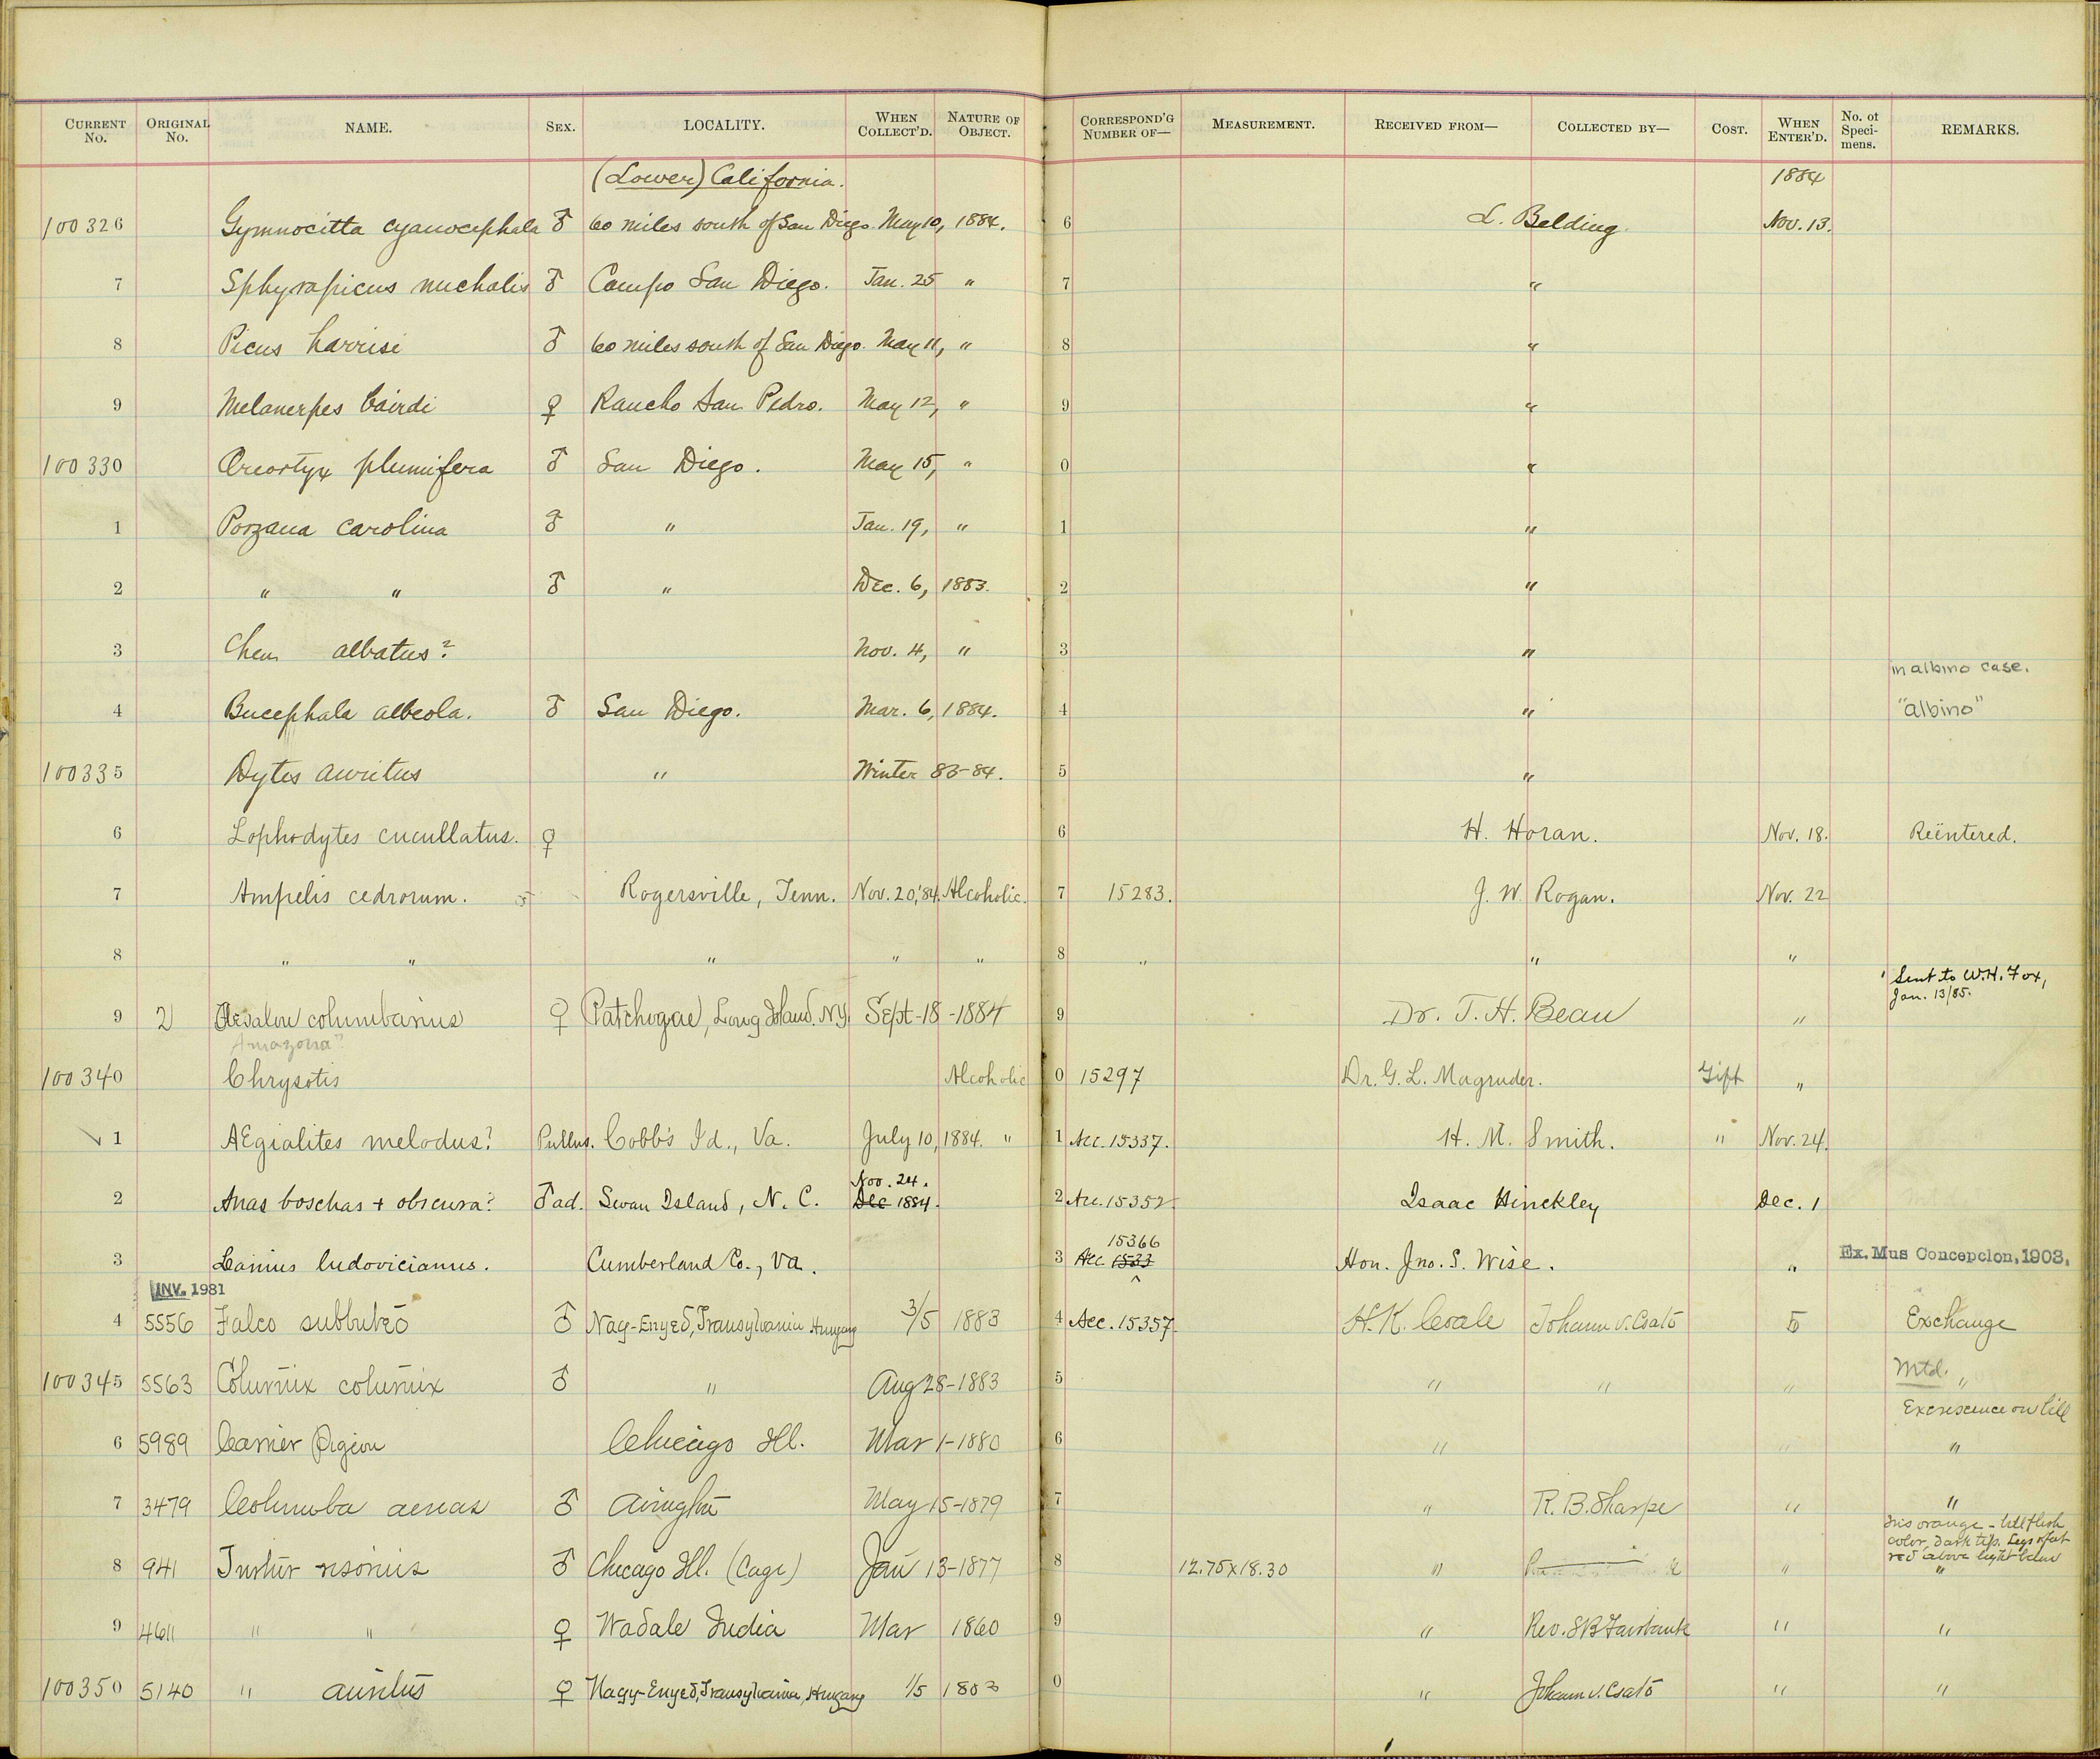 CURRENT No. ORIGINAL No. NAME. SEX. LOCALITY. WHEN COLLECT'D. NATURE OF OBJECT. CORRESPOND'G NUMBER OF— MEASUREMENT. RECEIVED FROM— COLLECTED BY— COST. WHEN ENTER'D. No. of Specimens. REMARKS.
(Lower) California. 1884
100326 Gymnocitta cyanocephala ♂ 60 miles south of San Diego. May 10, 1884. 6 L. Belding. Nov. 13.
7 Sphyrapicus nuchalis ♂ Campo San Diego. Jan. 25 " 7 "
8 Picus harrisi ♂ 60 miles south of San Diego. May 11, " 8 "
9 Melanerpes bairdi ♀ Rancho San Pedro. May 12, " 9 "
100330 Oreortyx plumifera ♂ San Diego. May 15, " 0 "
1 Porzana carolina " Jan. 19, " 1 "
2 " " ♂ " Dec. 6, 1883. 2 "
3 Chen albatus? Nov. 4, " 3 "
in albino case.
4 Bucephala albeola. ♂ San Diego. Mar. 6, 1884. 4 " "albino"
100335 Dytes auritus " Winter 83-84. 5 "
6 Lophodytes cucullatus. ♀ 6 H. Horan. Nov. 18. Reëntered.
7 Ampelis cedrorum. Rogersville, Tenn. Nov. 20,'84. Alcoholic. 7 15283. J. W. Rogan. Nov. 22
8 " " " " " 8 " " "
Sent to W.H. Fox,
Jan. 13/85.
9 2 Aesalon columbarius ♀ Patchogue, Long Island. N.Y. Sept-18-1884 9 Dr. T. H. Bean "
Amazona?
100340 Chrysotis Alcoholic 0 15297 Dr. G. L. Magruder. Gift "
1 AEgialites melodus? Pullus. Cobb's I'd., Va. July 10, 1884. " 1 Acc. 15337. H. M. Smith. " Nov. 24.
Nov. 24.
2 Anas boschas + obscura? ♂ ad. Swan Island, N. C. Dec 1884. 2 Acc. 15352. Isaac Hinckley Dec. 1
15366
3 Lanius ludovicianus. Cumberland Co., Va. 3 Acc. 1533 Hon. Jno. S. Wise. " Ex. Mus Concepcion, 1903.
INV. 1981
4 5556 Falco subbuteo ♂ Nagy-Enyed, Transylvania Hungary 3/5 1883 4 Acc. 15357. H. K. Coale Johann v. Csato 5 Exchange
Mtd.
100345 5563 Coturnix coturnix ♂ " Aug 28-1883 5 " " " "
Excrescence on bill
6 5989 Carrier Pigeon Chicago Ill. Mar 1-1880 6 " " "
7 3479 Columba aenas ♂ May 15-1879 7 " R. B. Sharpe " "
Iris orange - bill flesh
color, dark tip. Legs & feet
red above light below
8 941 Turtur risorius ♂ Chicago Ill. (Cage) Jan 13-1877 8 12.75x18.30 " " "
9 4611 " " ♀ Wadale India Mar 1860 9 " Rev. S B Fairbank " "
100350 5140 " auritus ♀ Nagy-Enyed, Transylvania, Hungary 1/5 1883 0 " Johann v. Csato " "